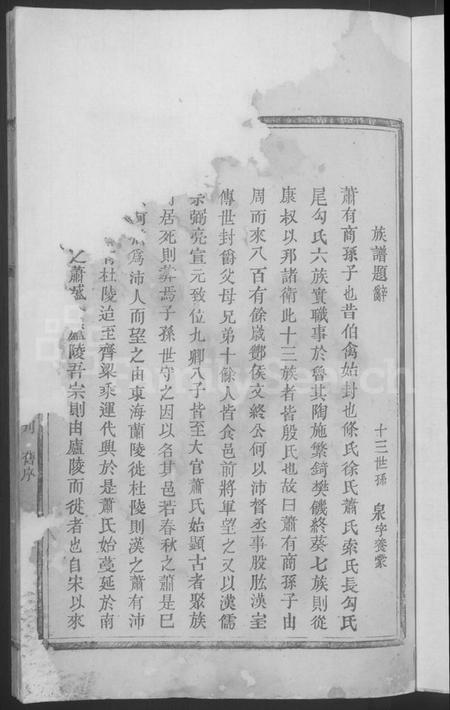 族譜題辭 十三世孫 泉字養蒙
蕭有商孫子也昔伯禽始封也條氏徐氏蕭氏索氏長勾氏
尾勾氏六族實職事於魯其陶施繁錡樊饑終葵七族則從
康叔以邢諸衛此十三族者皆殷氏也故曰蕭有商孫子由
周而來八百有餘歲酇侯文終公何以沛督丞事股肱漢室
傳世封爵父母兄弟十餘人皆食邑前將軍望之又以漢儒
宗弼亮宣元致位九卿八子皆至大官蕭氏始顯古者聚族
居死則葬焉子孫世守之因以名其邑若春秋之蕭是巳
何 為沛人而望之由東海蘭陵徙杜陵則漢之蕭有沛
有杜陵迨至齊梁乘運代興於是蕭氏始蔓延於南
之蕭 盧陵吾宗則由廬陵而徙者也自宋以來
舊序